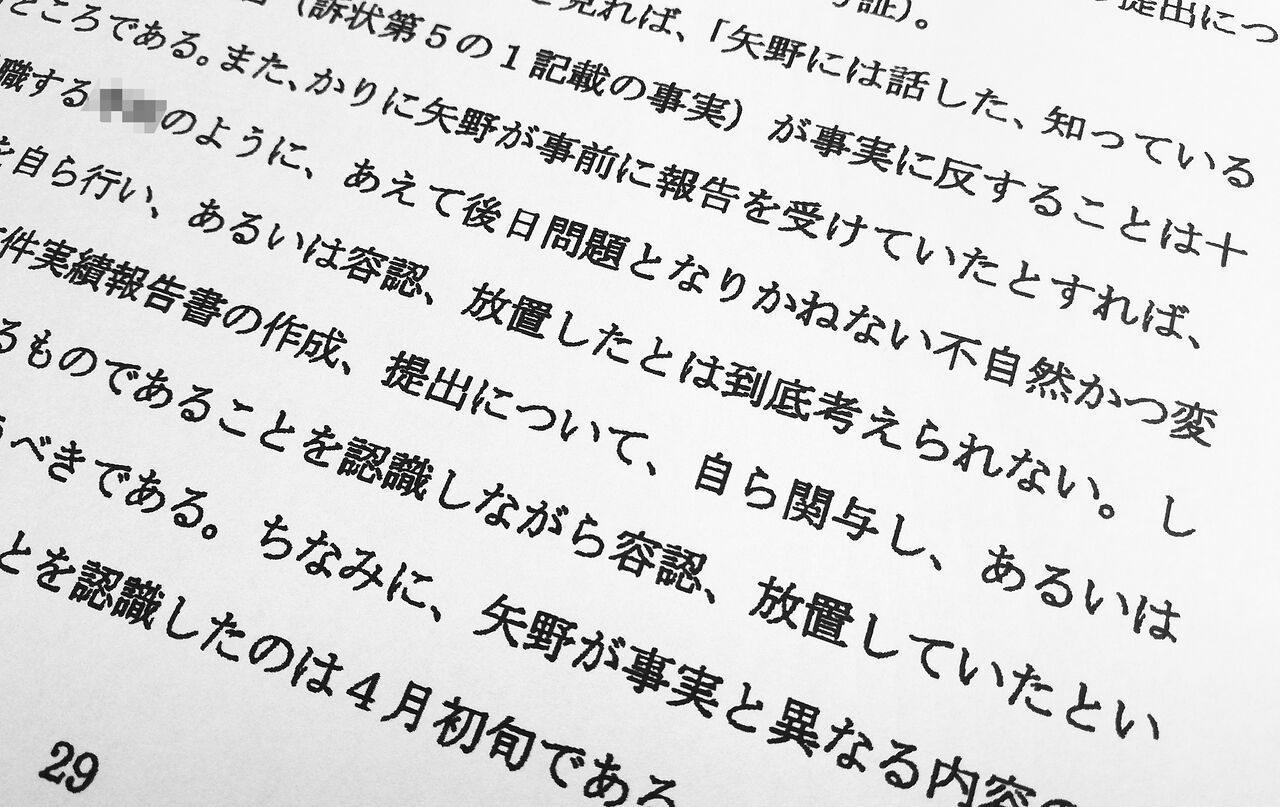 の提出につ
証）。
を見れば、「矢野には話した、知っている
（訴状第５の１記載の事実）が事実に反することは十
ところである。また、かりに矢野が事前に報告を受けていたとすれば、
職する のように、あえて後日問題となりかねない不自然かつ変
を自ら行い、あるいは容認、放置したとは到底考えられない。し
件実績報告書の作成、提出について、自ら関与し、あるいは
るものであることを認識しながら容認、放置していたとい
うべきである。ちなみに、矢野が事実と異なる内容の
とを認識したのは４月初旬である
29